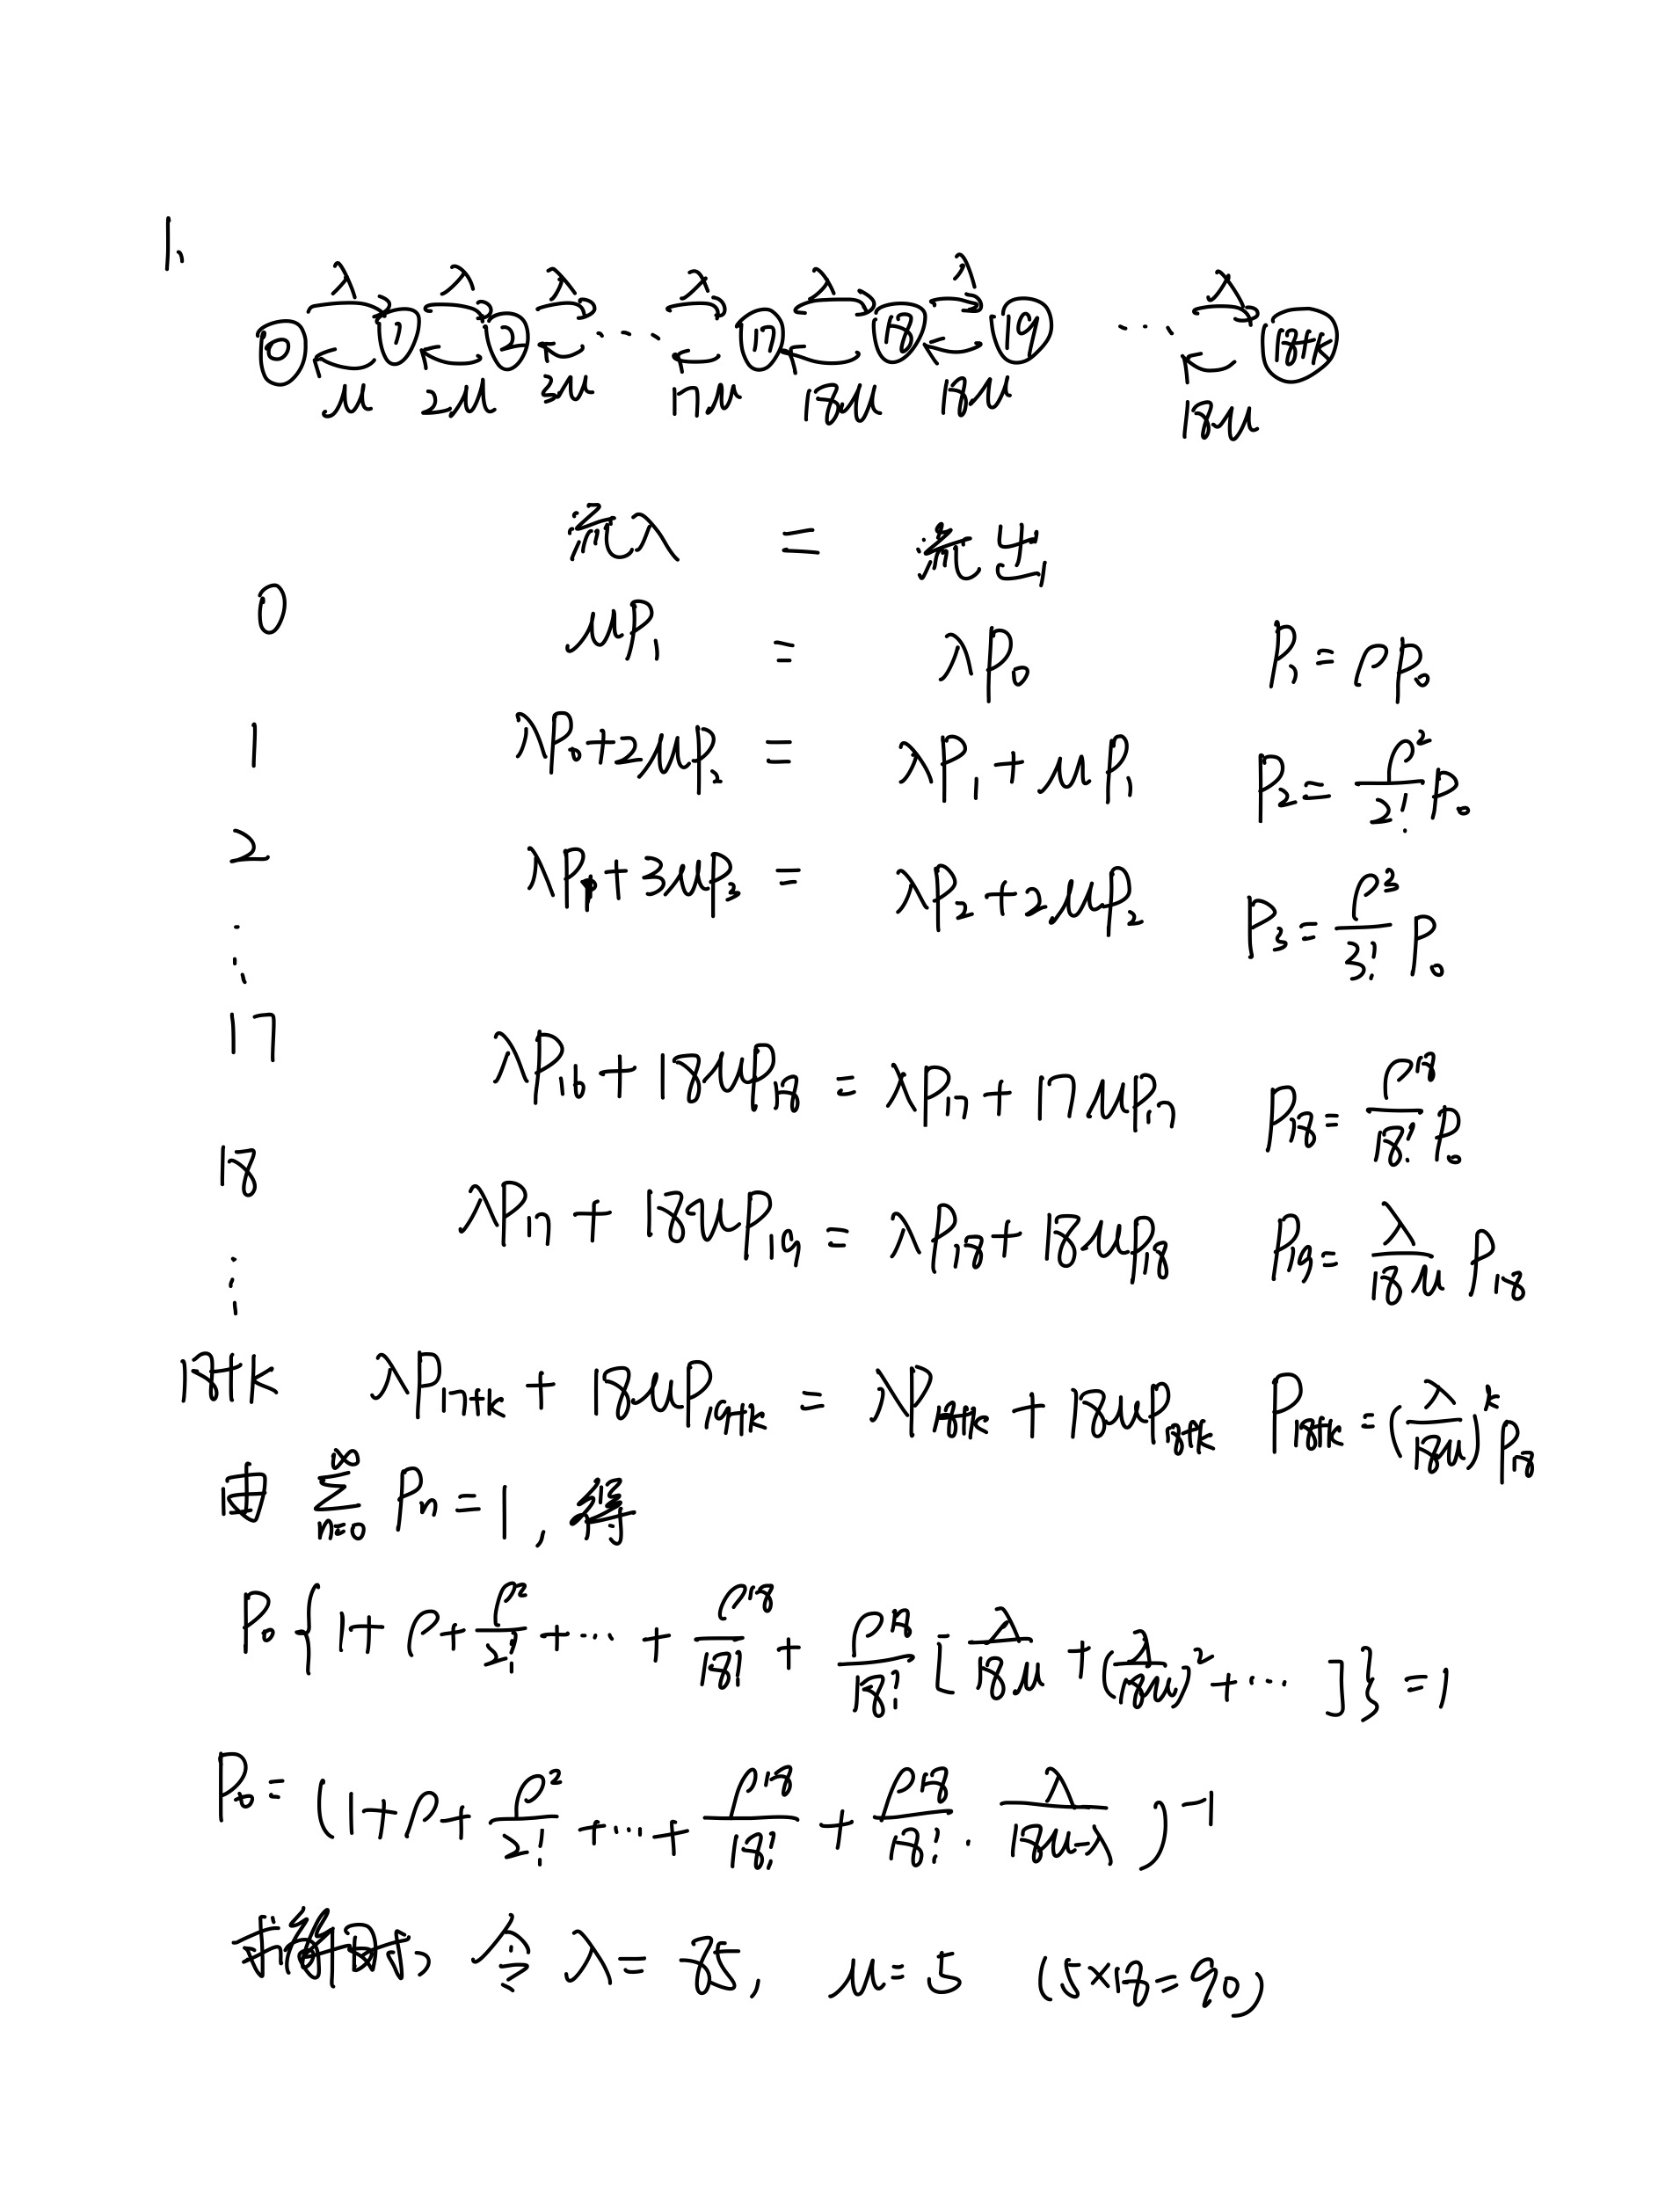 1.
λ λ λ λ λ λ λ
0 1 2 ... 17 18 19 ... 18+k
μ 2μ 3μ 17μ 18μ 18μ 18μ
流入 = 流出
0 μP₁ = λP₀ P₁ = ρP₀
1 λP₀+2μP₂ = λP₁+μP₁ P₂ = ρ²/2! P₀
2 λP₁+3μP₃ = λP₂+2μP₂ P₃ = ρ³/3! P₀
⋮
17 λP₁₆+18μP₁₈ = λP₁₇+17μP₁₇ P₁₈ = ρ¹⁸/18! P₀
18 λP₁₇+18μP₁₉ = λP₁₈+18μP₁₈ P₁₉ = λ/18μ P₁₈
⋮
18+k λP₁₇₊ₖ+18μP₁₉₊ₖ = λP₁₈₊ₖ+18μP₁₈₊ₖ P₁₈₊ₖ = (λ/18μ)ᵏ P₁₈
由 ∑_{n=0}^{∞} Pₙ = 1, 得
P₀{1+ρ+ρ²/2!+...+ρ¹⁸/18!+ρ¹⁸/18![λ/18μ+(λ/18μ)²+...]}=1
P₀=(1+ρ+ρ²/2!+...+ρ¹⁸/18!+ρ¹⁸/18!·λ/18μ-λ)⁻¹
令 λ=85, μ=5 (5×18=90)